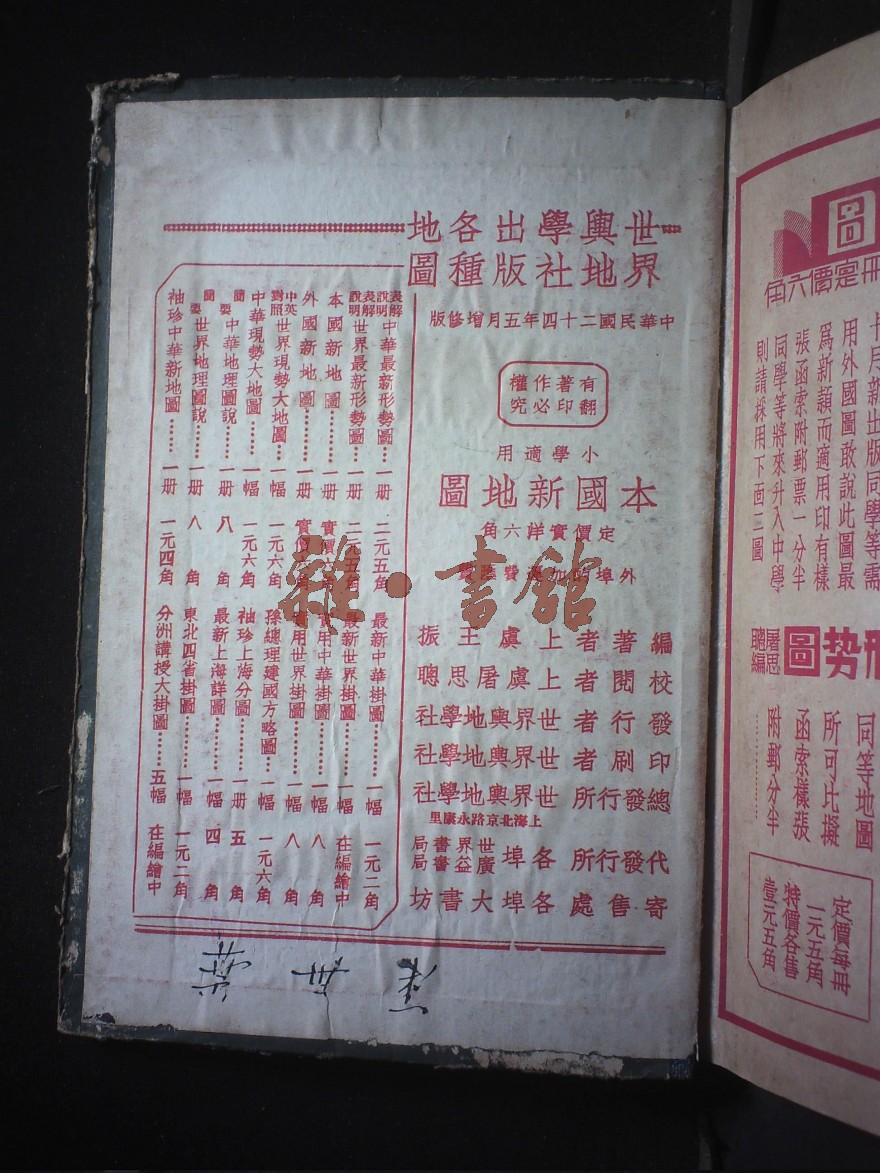 世界輿地學社出版各種地圖
中華民國二十四年五月增修版
有著作權
翻印必究
小學適用
本國新地圖
定價實洋六角
外埠酌加運費匯費
編著者 上虞王振
校閱者 上虞屠思聰
發行者 世界輿地學社
印刷者 世界輿地學社
總發行所 世界輿地學社
上海北京路永康里
代發行所 各埠 世界書局 廣益書局
寄售處 各埠大書坊
表解說明 中華最新形勢圖……一册 二元五角
表解說明 世界最新形勢圖……一册 二元五角
本國新地圖……一册 實價六角
外國新地圖……一册 實價六角
中英對照 世界現勢大地圖……一幅 一元六角
中華現勢大地圖……一幅 一元六角
簡要 中華地理圖說……一册 八角
簡要 世界地理圖說……一册 八角
袖珍中華新地圖……一册 一元四角
最新中華掛圖……一幅 一元二角
最新世界掛圖……一幅 在編繪中
用中華掛圖……一幅 八角
實用世界掛圖……一幅 八角
孫總理建國方略圖…一幅 一元六角
袖珍上海分圖……一册 五角
最新上海詳圖……一幅 四角
東北四省掛圖……一幅 一元二角
分洲講授大掛圖……五幅 在編繪中
雜·書館
圖
册定價六角
十月新出版同學等需
用外國圖敢說此圖最
為新穎而適用印有樣
張函索附郵票一分半
同學等將來升入中學
則請採用下面二圖
形势圖
屠思聰編
同等地圖
所可比擬
函索樣張
附郵分半
定價每冊
一元五角
特價各售
壹元五角